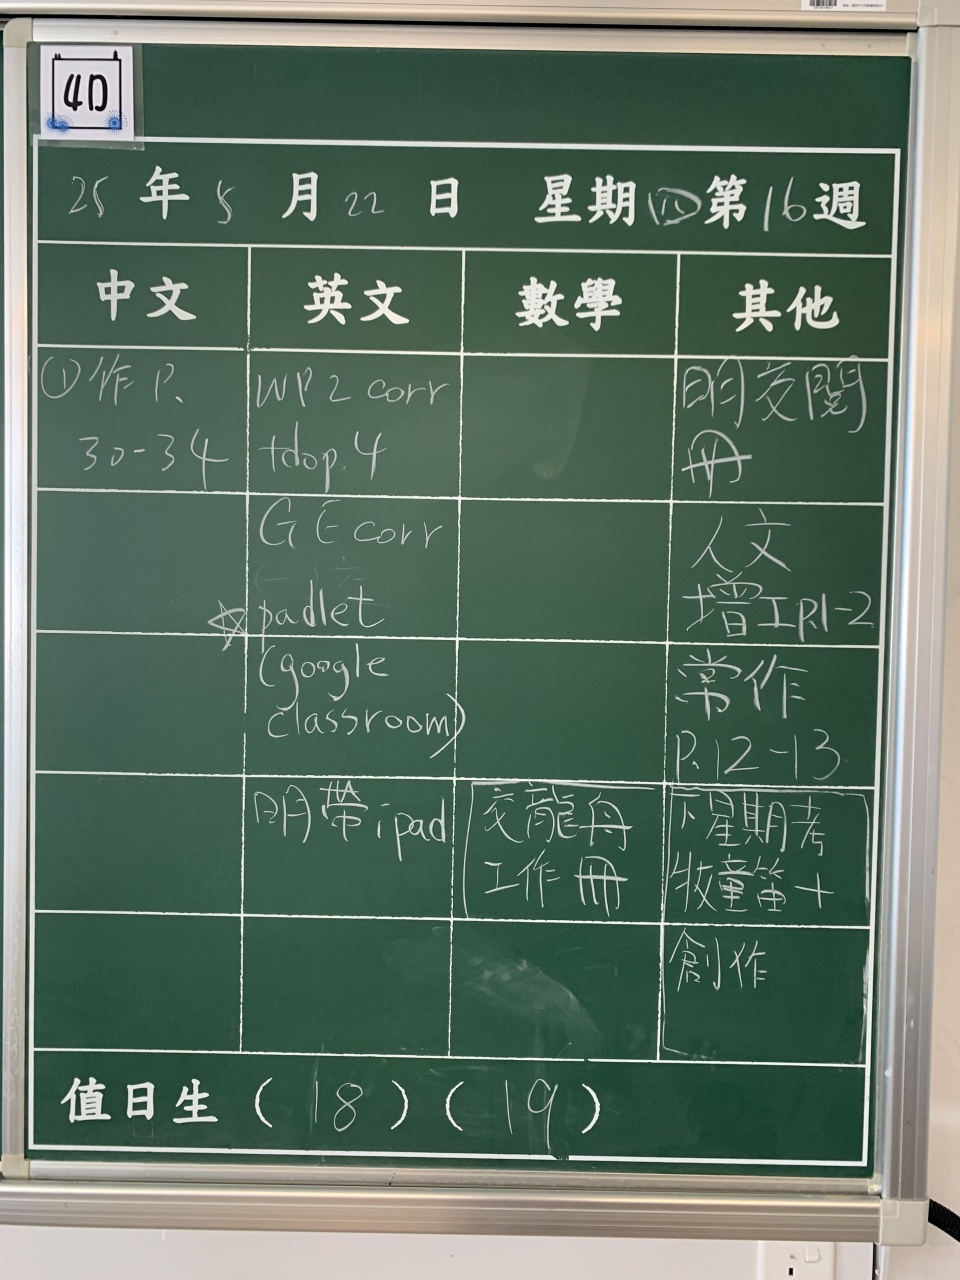 4D
25年5月22日 星期四第16週
中文 英文 數學 其他
①作P.
30-34
WP2 corr
tdop.4
明交閱
冊
GE corr
padlet
人文
增工P.1-2
(google
classroom)
常作
P.12-13
明帶ipad
交龍舟
工作冊
下星期考
牧童笛+
創作
值日生(18)(19)